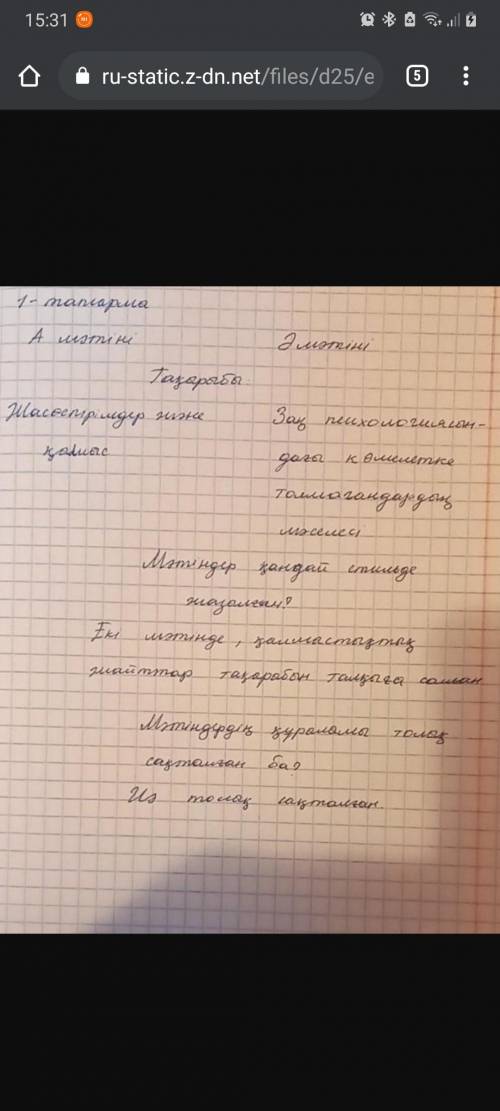 15:31
ru-static.z-dn.net/files/d25/e
5
1-тапсырма
А мәтіні Ә мәтіні
Тақырыбы:
Жасөспірімдер және Заң психологиясын-
қылмыс дағы кәмелетке
толмағандардың
мәселесі
Мәтіндер қандай стильде
жазылған?
Екі мәтінде,
жайттар тақырабын талқыға салған
Мәтіндердің құрылымы толық
сақталған ба?
Иә толық сақталған.